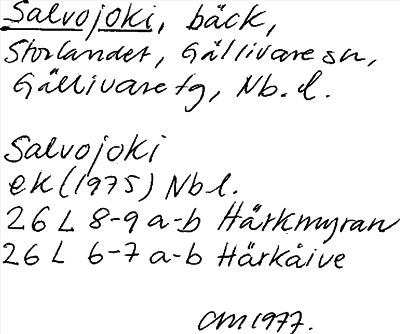 Salvojoki, bäck,
Storlandet, Gällivare sn,
Gällivare tg, Nb. l.
Salvojoki
ek (1975) Nbl.
26 L 8-9 a-b Härkmyran
26 L 6-7 a-b Härkåive
CM 1977.